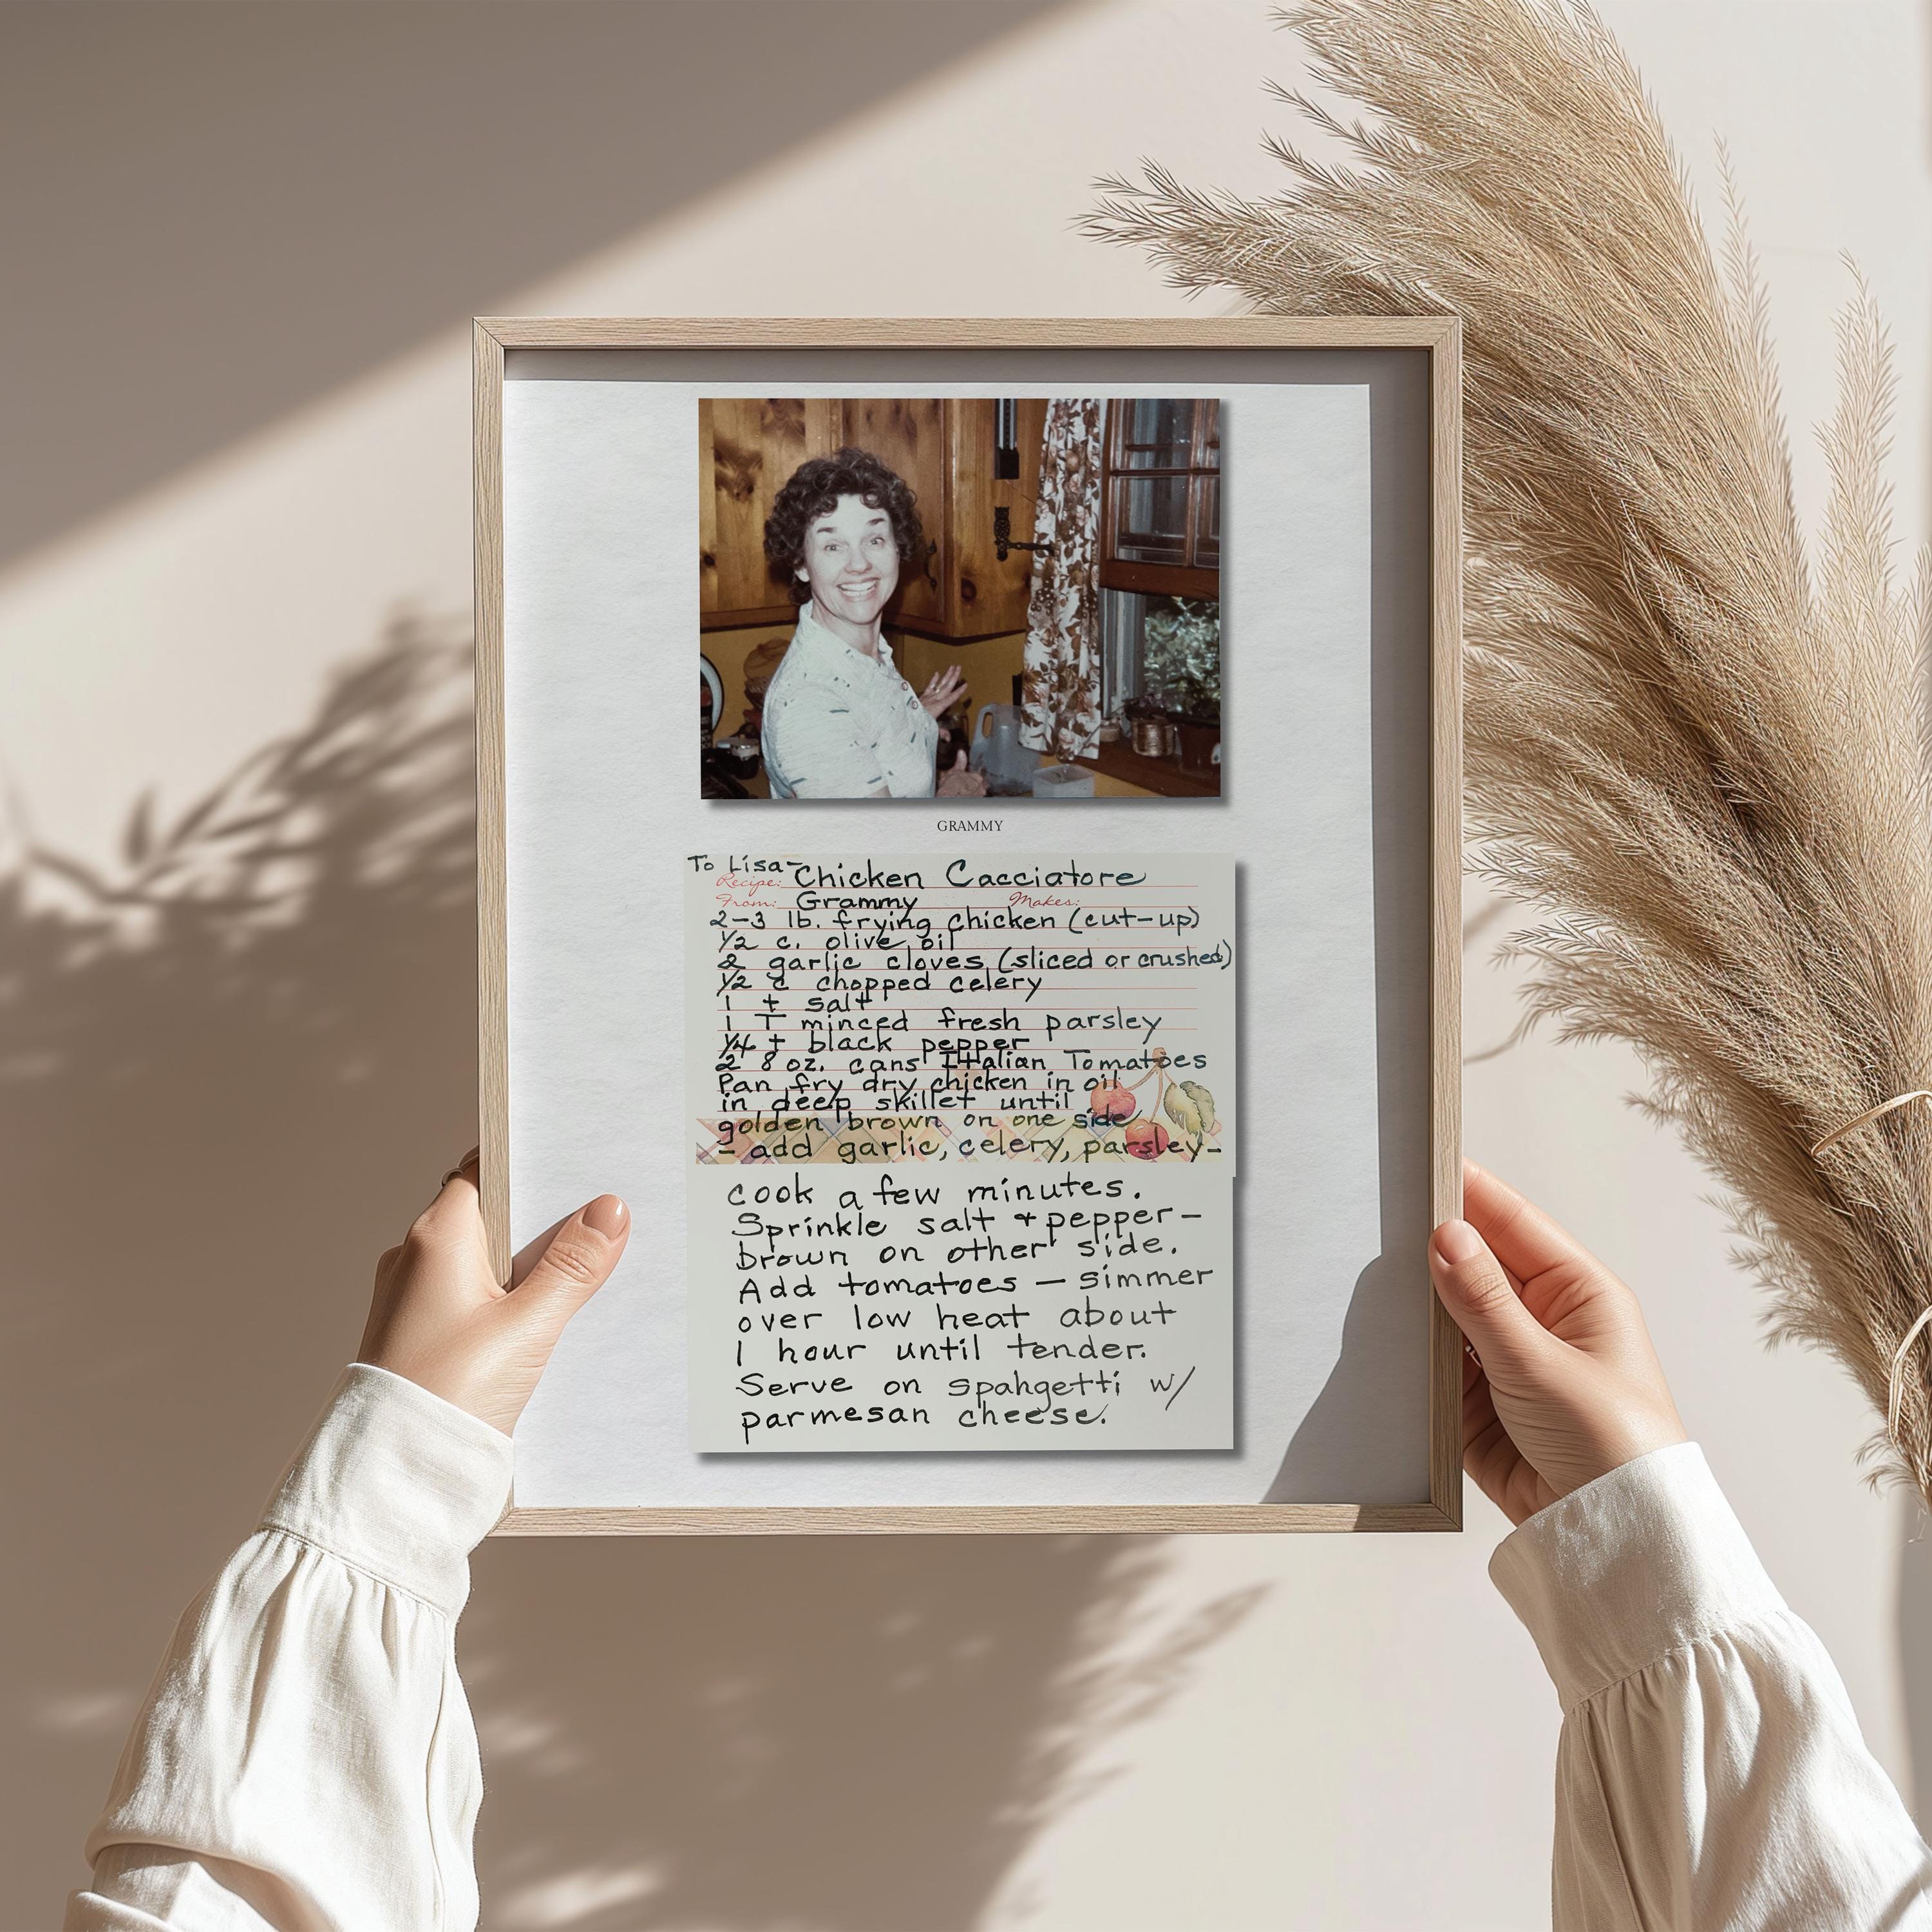 GRAMMY
To Lisa-
Recipe: Chicken Cacciatore
From: Grammy Makes:
2-3 lb. frying chicken (cut-up)
1/2 c. olive oil
2 garlic cloves (sliced or crushed)
1/2 c chopped celery
1 t salt
1 T minced fresh parsley
1/4 t black pepper
2 8 oz. cans Italian Tomatoes
Pan fry dry chicken in oil
in deep skillet until
golden brown on one side
- add garlic, celery, parsley-
cook a few minutes.
Sprinkle salt + pepper-
brown on other side.
Add tomatoes - simmer
over low heat about
1 hour until tender.
Serve on spahgetti w/
parmesan cheese.